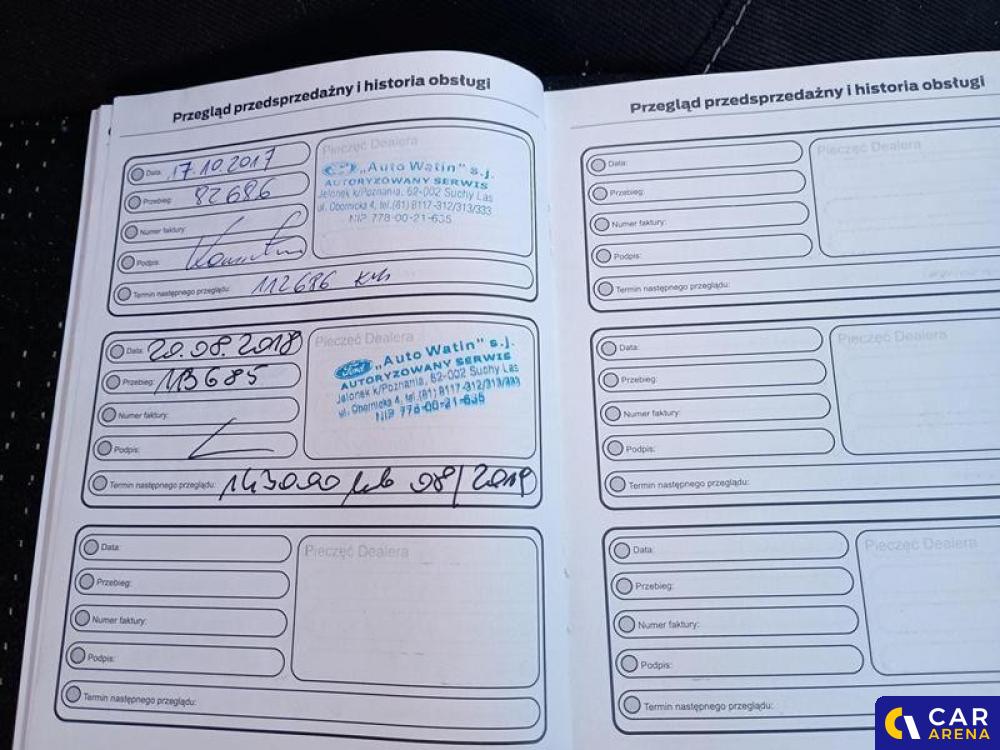 Przegląd przedsprzedażny i historia obsługi
Data: 17.10.2017
Przebieg: 82686
Numer faktury:
Podpis:
Termin następnego przeglądu: 112686 km
Pieczęć Dealera
Ford „Auto Watin" s.j.
AUTORYZOWANY SERWIS
Jelonek k/Poznania, 62-002 Suchy Las
ul. Obornicka 4, tel. (61) 8117-312/313/333
NIP 778-00-21-635
Data: 20.08.2018
Przebieg: 113685
Numer faktury:
Podpis:
Termin następnego przeglądu: 143000 lub 08/2019
Pieczęć Dealera
Ford „Auto Watin" s.j.
AUTORYZOWANY SERWIS
Jelonek k/Poznania, 62-002 Suchy Las
ul. Obornicka 4, tel. (61) 8117-312/313/333
NIP 778-00-21-635
Data:
Przebieg:
Numer faktury:
Podpis:
Termin następnego przeglądu:
Pieczęć Dealera
Przegląd przedsprzedażny i historia obsługi
Data:
Przebieg:
Numer faktury:
Podpis:
Termin następnego przeglądu:
Pieczęć Dealera
Data:
Przebieg:
Numer faktury:
Podpis:
Termin następnego przeglądu:
Pieczęć Dealera
Data:
Przebieg:
Numer faktury:
Podpis:
Termin następnego przeglądu:
Pieczęć Dealera
CAR
ARENA